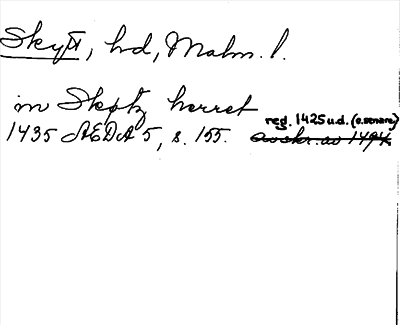 Skytt, hd, Malm. l.
in Skøtz herret
reg. 1425 u.d. (o. senare)
1435 ÆDA 5, s. 155. avskr. av 1494